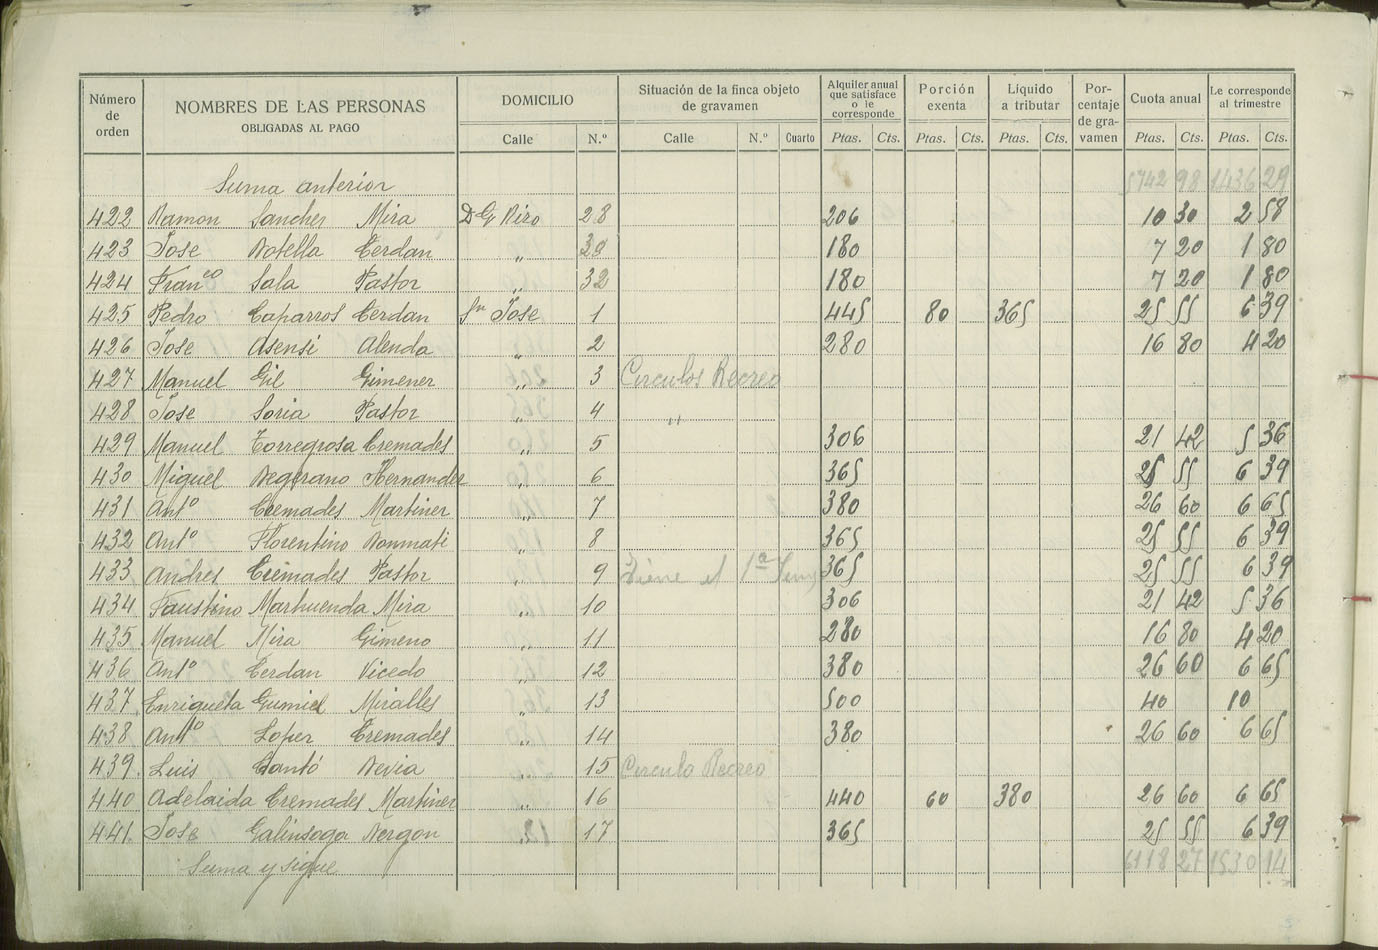 Número de orden NOMBRES DE LAS PERSONAS OBLIGADAS AL PAGO DOMICILIO Situación de la finca objeto de gravamen Alquiler anual que satisface o le corresponde Porción exenta Líquido a tributar Por-centaje de gra-vamen Cuota anual Le corresponde al trimestre
Calle N.º Calle N.º Cuarto Ptas. Cts. Ptas. Cts. Ptas. Cts. Ptas. Cts. Ptas. Cts.
Suma anterior 5742 98 1436 29
422 Ramon Sancher Mira D G Riro 28 206 10 30 2 58
423 Jose Botella Cerdan " 30 180 7 20 1 80
424 Franco Sala Pastor " 32 180 7 20 1 80
425 Pedro Caparros Cerdan Sn Jose 1 445 80 365 25 55 6 39
426 Jose Asensi Alenda " 2 280 16 80 4 20
427 Manuel Gil Gimener " 3 Circulos Recreo
428 Jose Soria Pastor " 4 "
429 Manuel Torregrosa Cremades " 5 306 21 42 5 36
430 Miguel Hernander " 6 365 25 55 6 39
431 Anto Cremades Martiner " 7 380 26 60 6 65
432 Anto Florentino Bonmati " 8 365 25 55 6 39
433 Andres Cremades Pastor " 9 Tiene el 1ª 365 25 55 6 39
434 Faustino Marhuenda Mira " 10 306 21 42 5 36
435 Manuel Mira Gimeno " 11 280 16 80 4 20
436 Anto Cerdan Vicedo " 12 380 26 60 6 65
437 Enriqueta Gumiel Miralles " 13 500 40 10
438 Anto Loper Cremades " 14 380 26 60 6 65
439 Luis Cantó Bevia " 15 Circulo Recreo
440 Adelaida Cremades Martiner " 16 440 60 380 26 60 6 65
441 Jose Galinsoga " 17 365 25 55 6 39
Suma y sigue 6118 27 1530 14